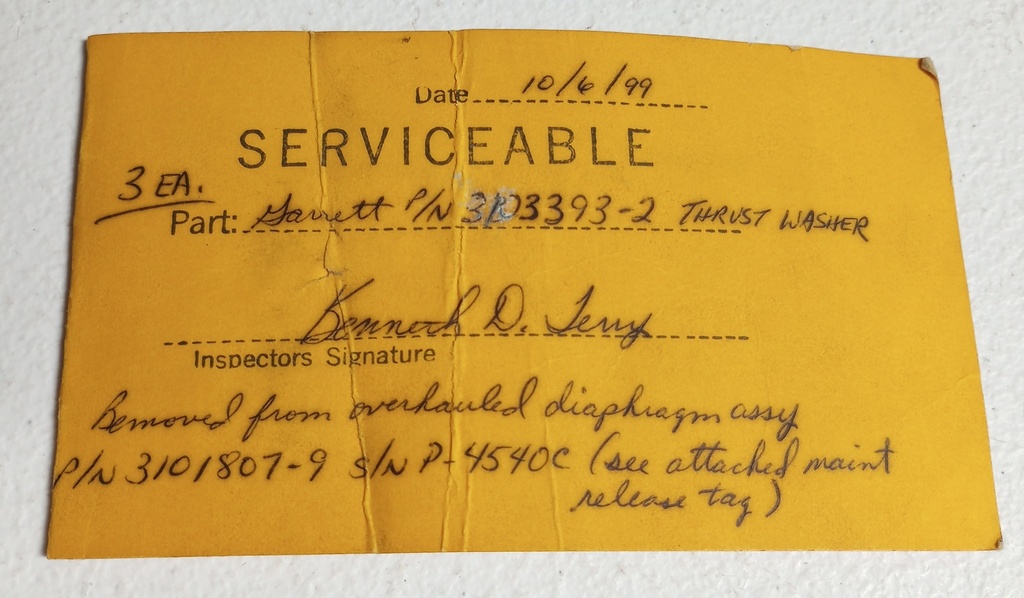 Date 10/6/99
SERVICEABLE
3 EA.
Part: Garrett P/N 3103393-2 THRUST WASHER
Kenneth D. Terry
Inspectors Signature
Removed from overhauled diaphragm assy
P/N 3101807-9 S/N P-4540C (see attached maint
release tag)